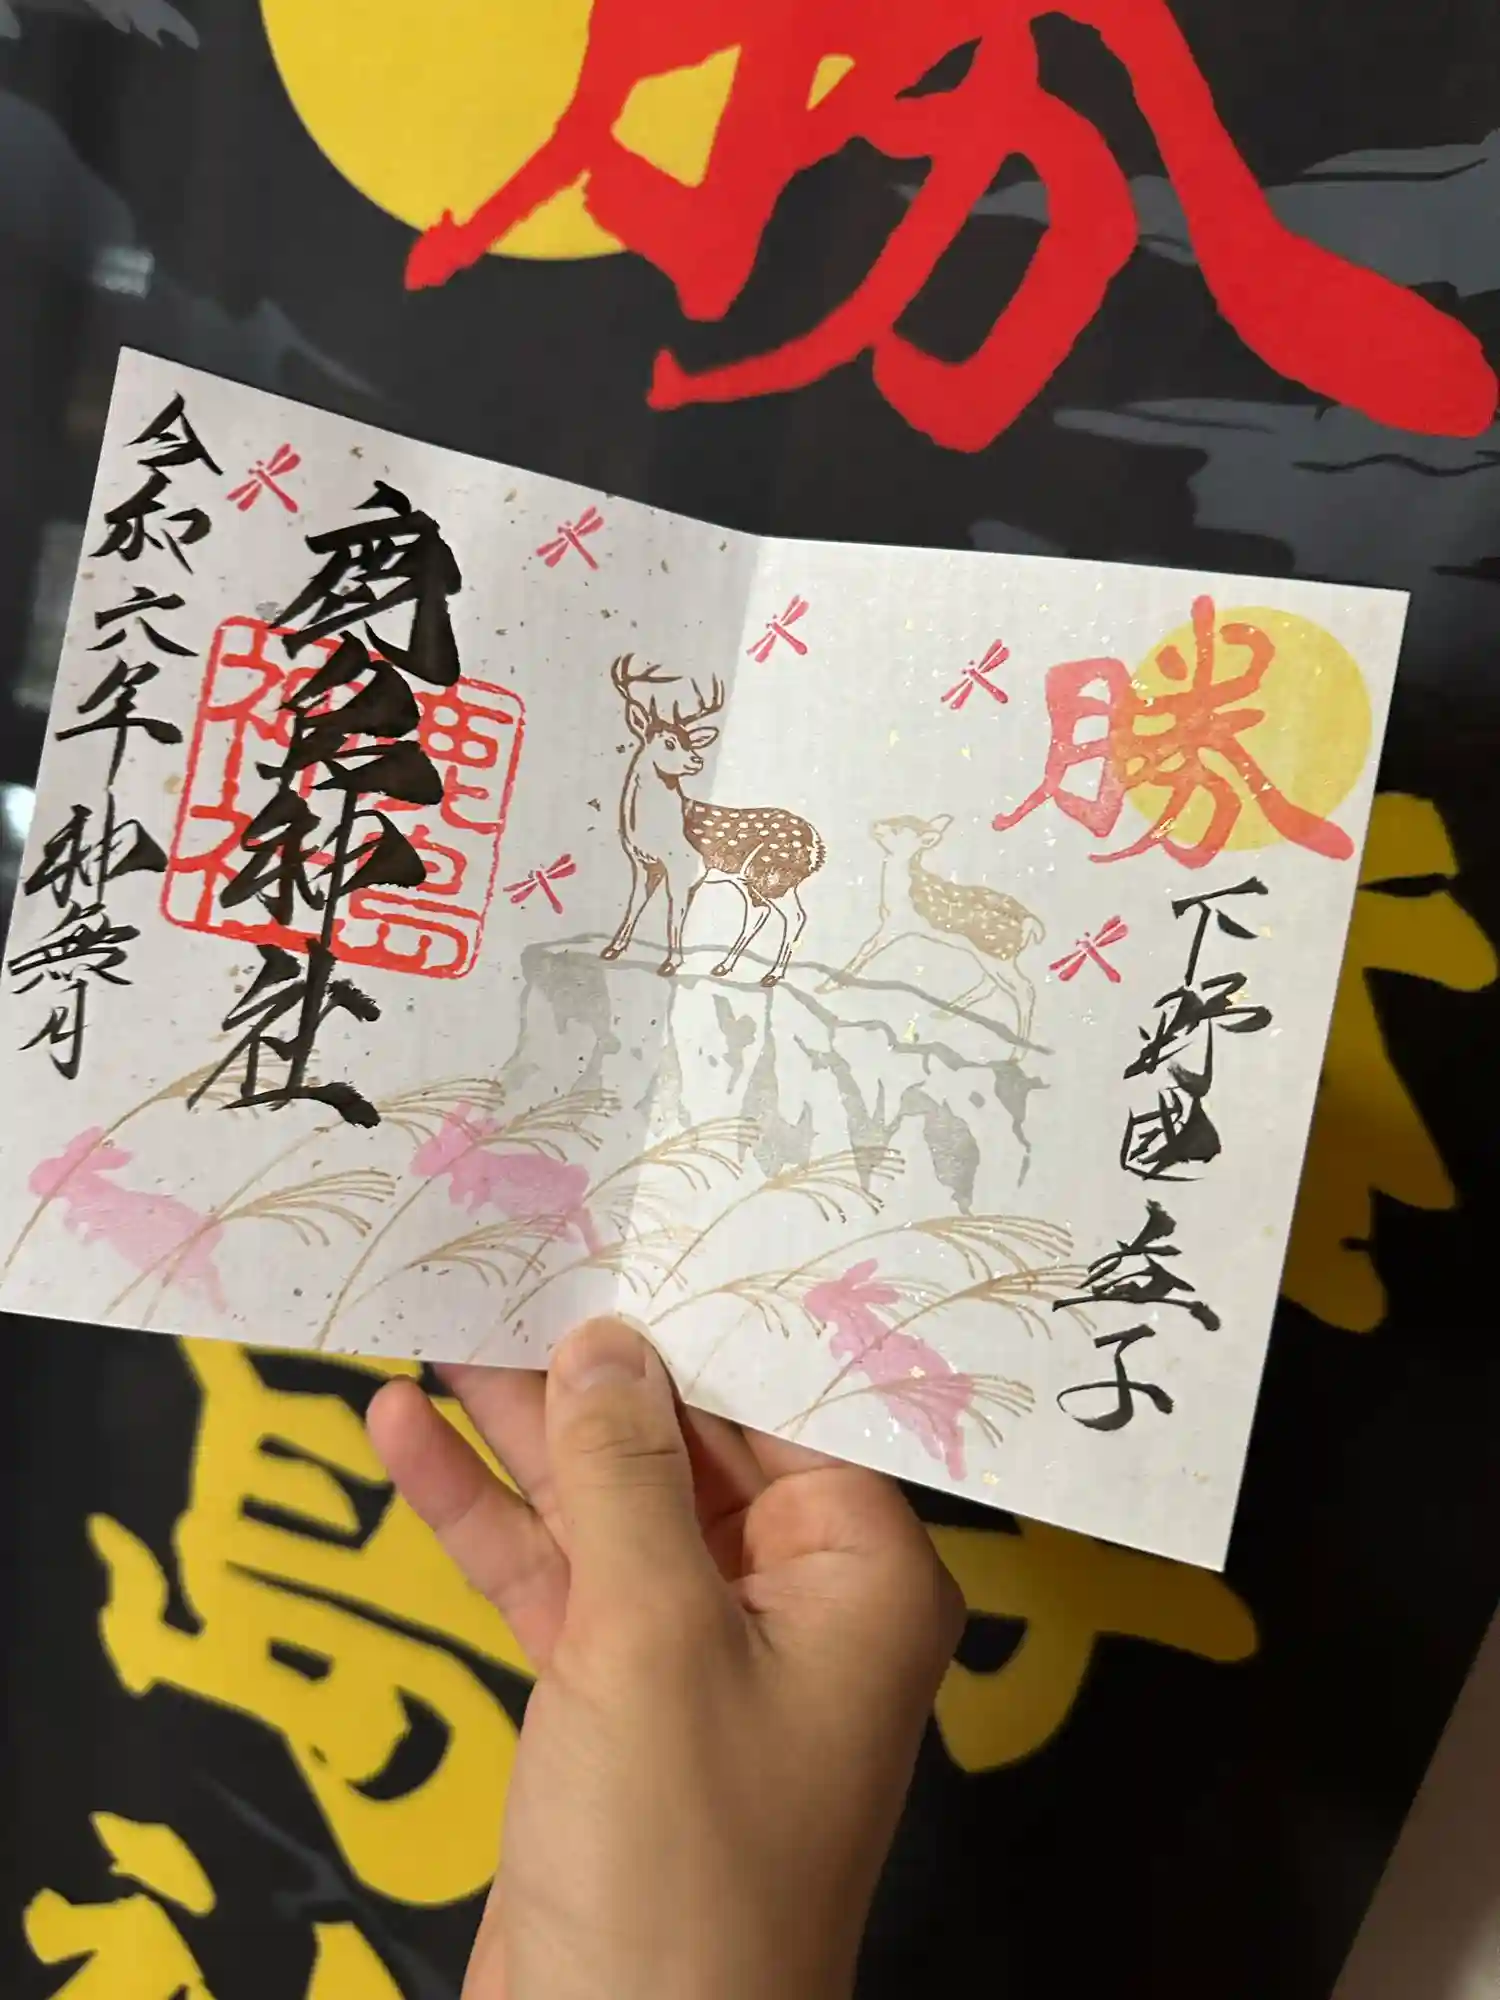 勝
勝
下野國 益子
鹿島神社
鹿島神社
令和六年 神無月